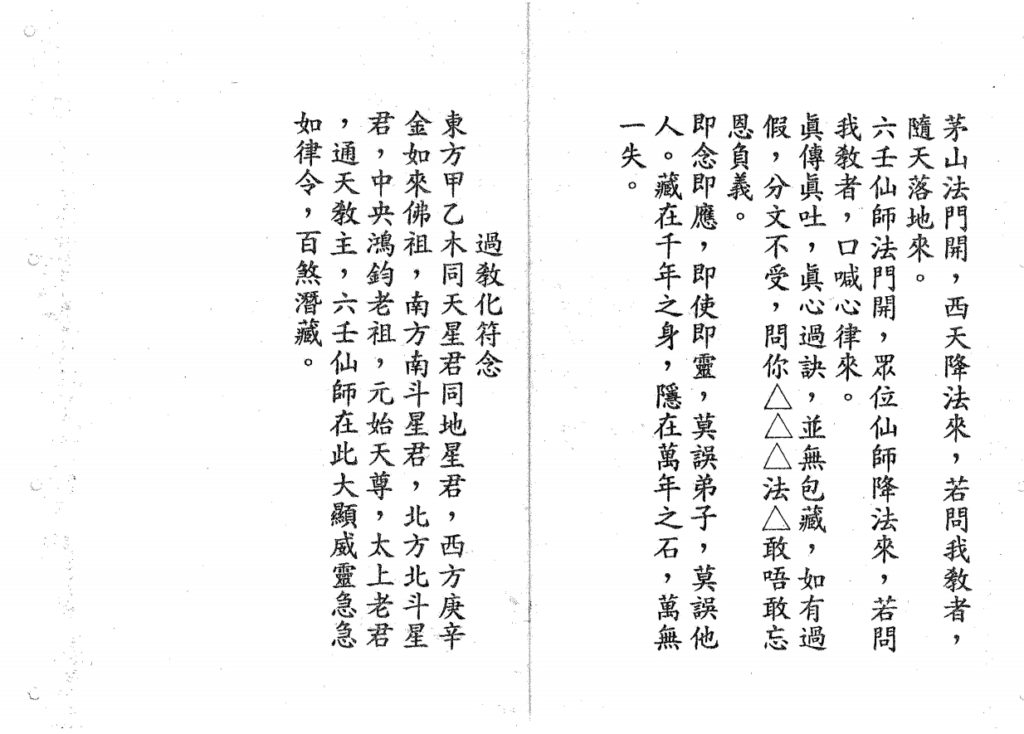 茅山法門開，西天降法來，若問我教者，
隨天落地來。
六壬仙師法門開，眾位仙師降法來，若問
我教者，口喊心律來。
眞傳眞吐，眞心過訣，並無包藏，如有過
假，分文不受，問你△△△法△敢唔敢忘
恩負義。
即念即應，即使即靈，莫誤弟子，莫誤他
人。藏在千年之身，隱在萬年之石，萬無
一失。
過教化符念
東方甲乙木同天星君同地星君，西方庚辛
金如來佛祖，南方南斗星君，北方北斗星
君，中央鴻鈞老祖，元始天尊，太上老君
，通天教主，六壬仙師在此大顯威靈急急
如律令，百煞潛藏。